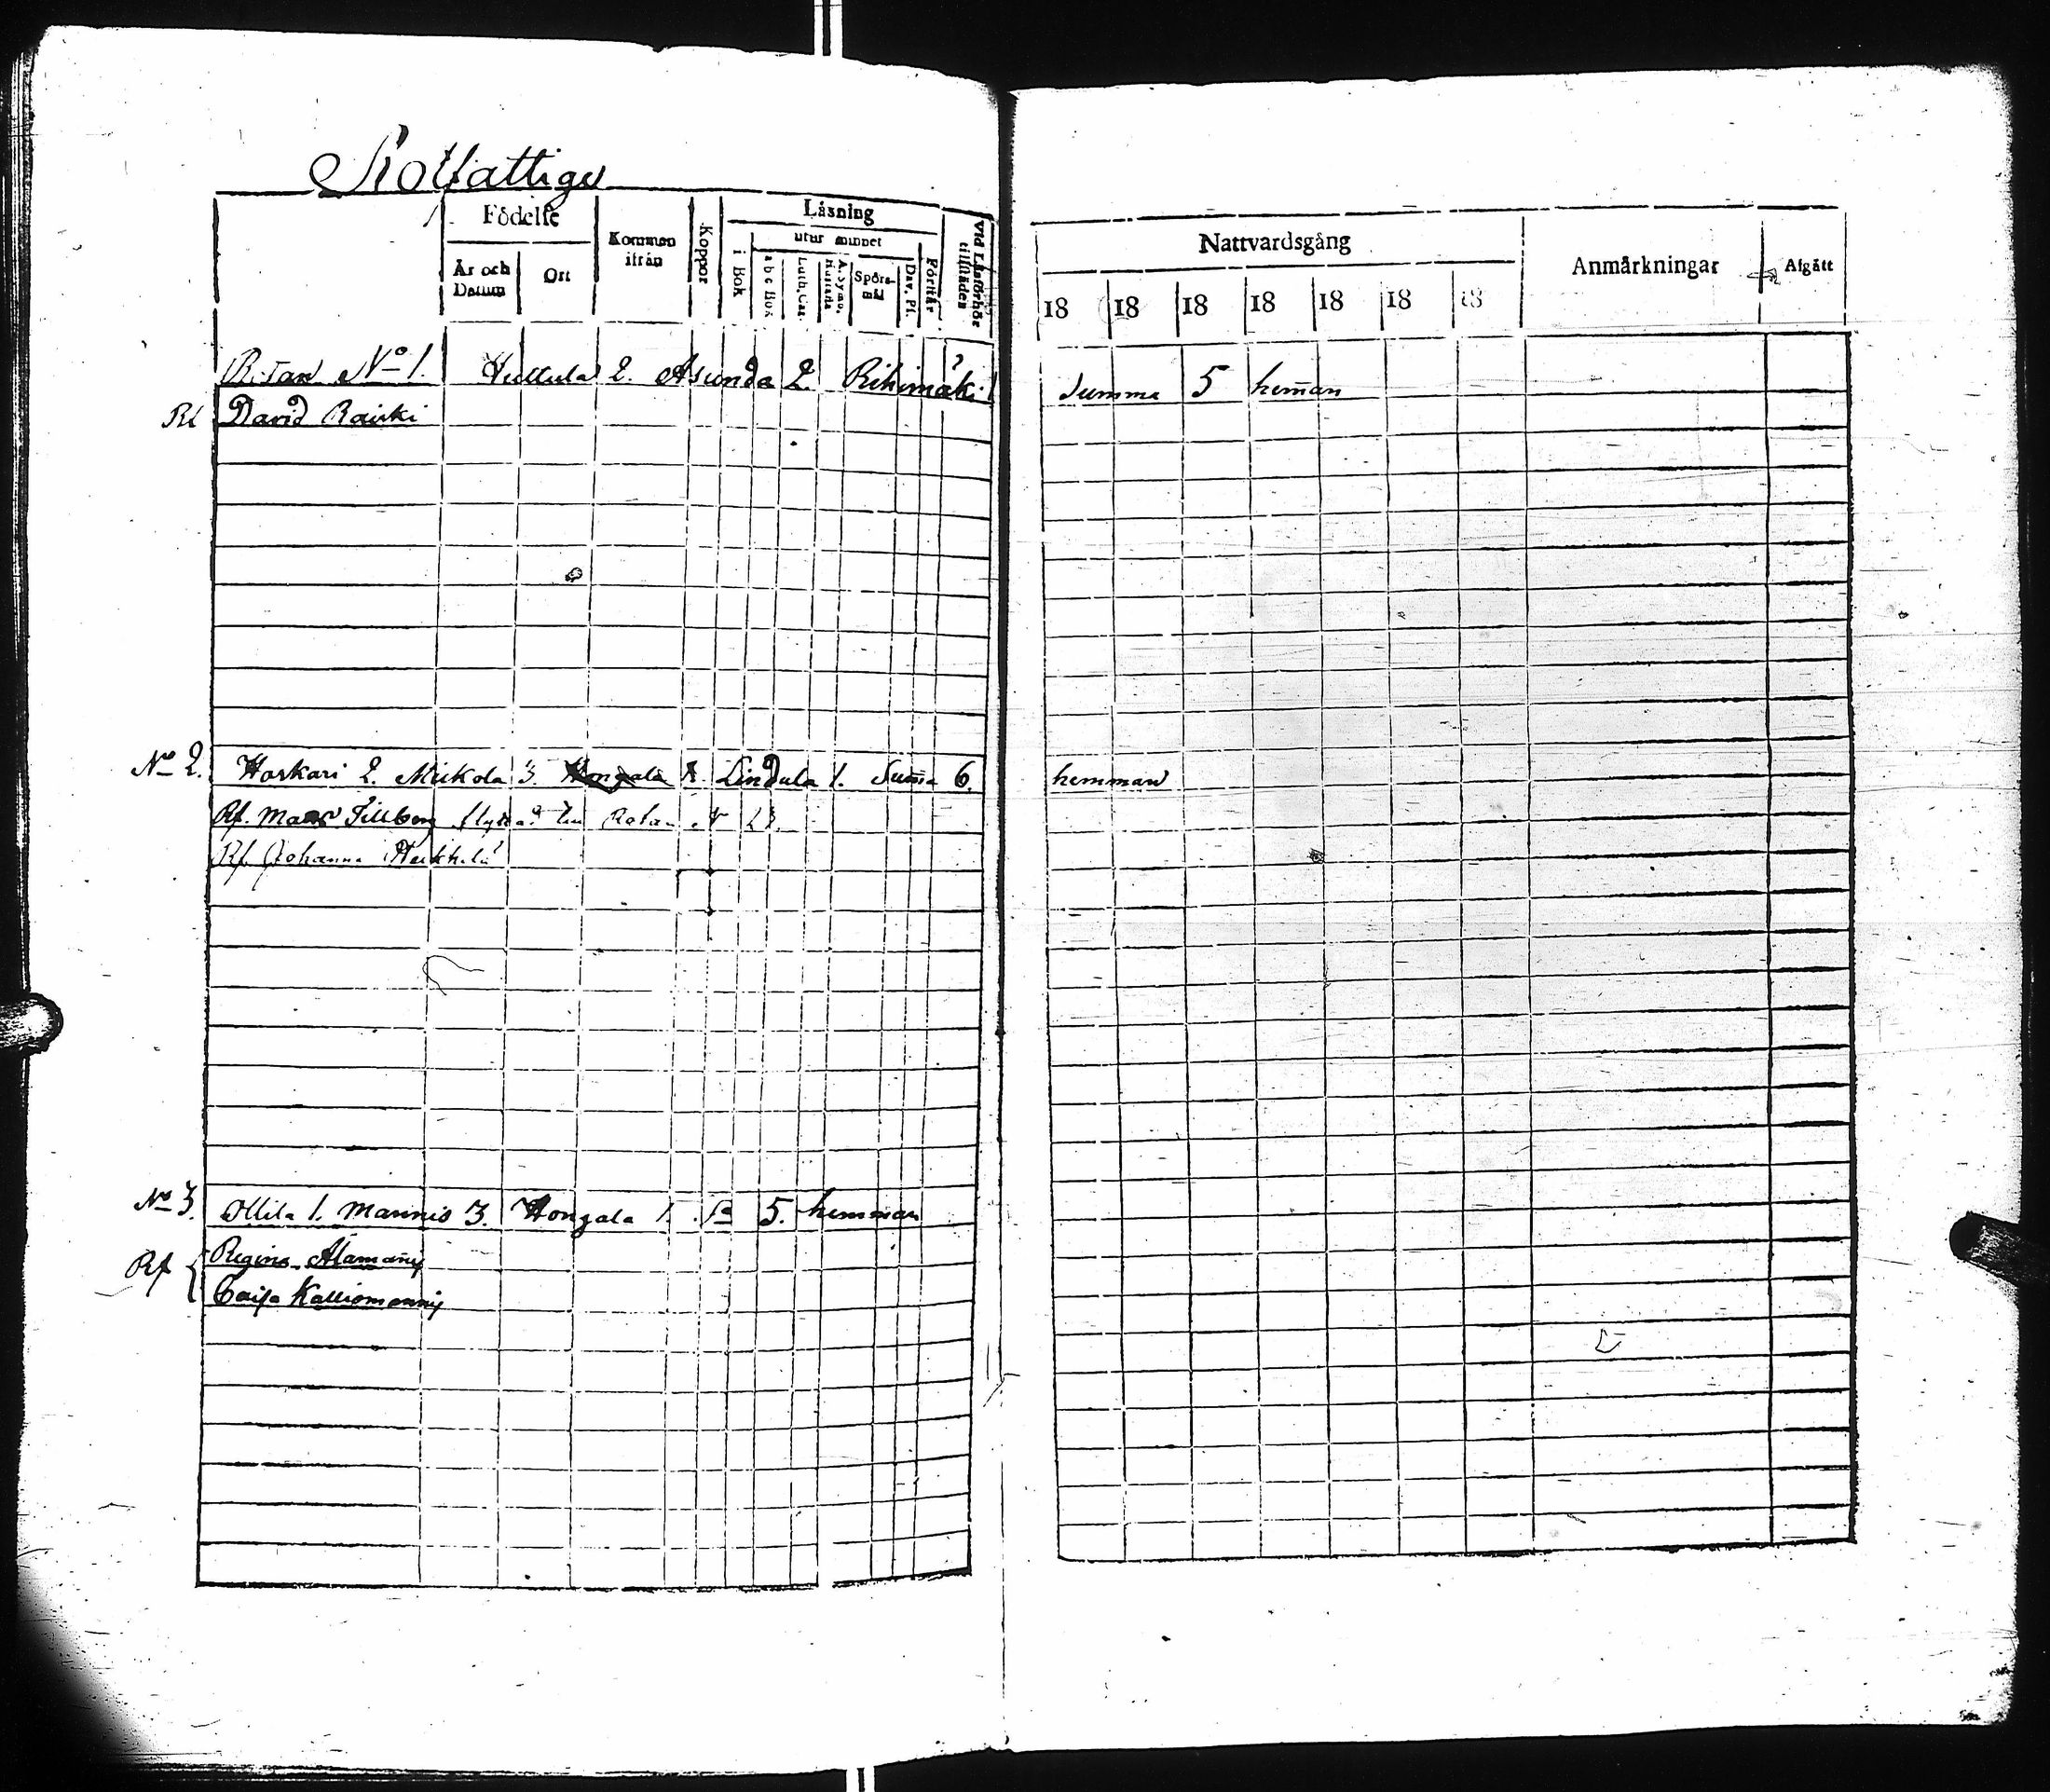 Rotfattiga
Födelse
Kommen ifrån
Koppor
Läsning
Vid Läsförhör tillstädes
År och Datum
Ort
i Bok
utur minnet
a b c Bok
Luth. Cat.
Spörsmål
Dav. Ps.
Förstår
Nattvardsgång
Anmärkningar
Afgått
18 18 18 18 18 18 18
Rotan No 1. Huttula 2. Asunda 2. Rihimäki 1 Summa 5 hem̄an
David Rauski
No 2. Harkari 2. Mickola 3. Hongala 1. Lindula 1. Sum̄a 6. hemman
Rf. Tillberg flyttad till Rotan N 23.
Rf. Johanna Heikkilä
No 3. Ollila 1. Mannis 3. Hongala 1. 5. hemman
Rf Regina Alamannis
Caisa Kalliomannis